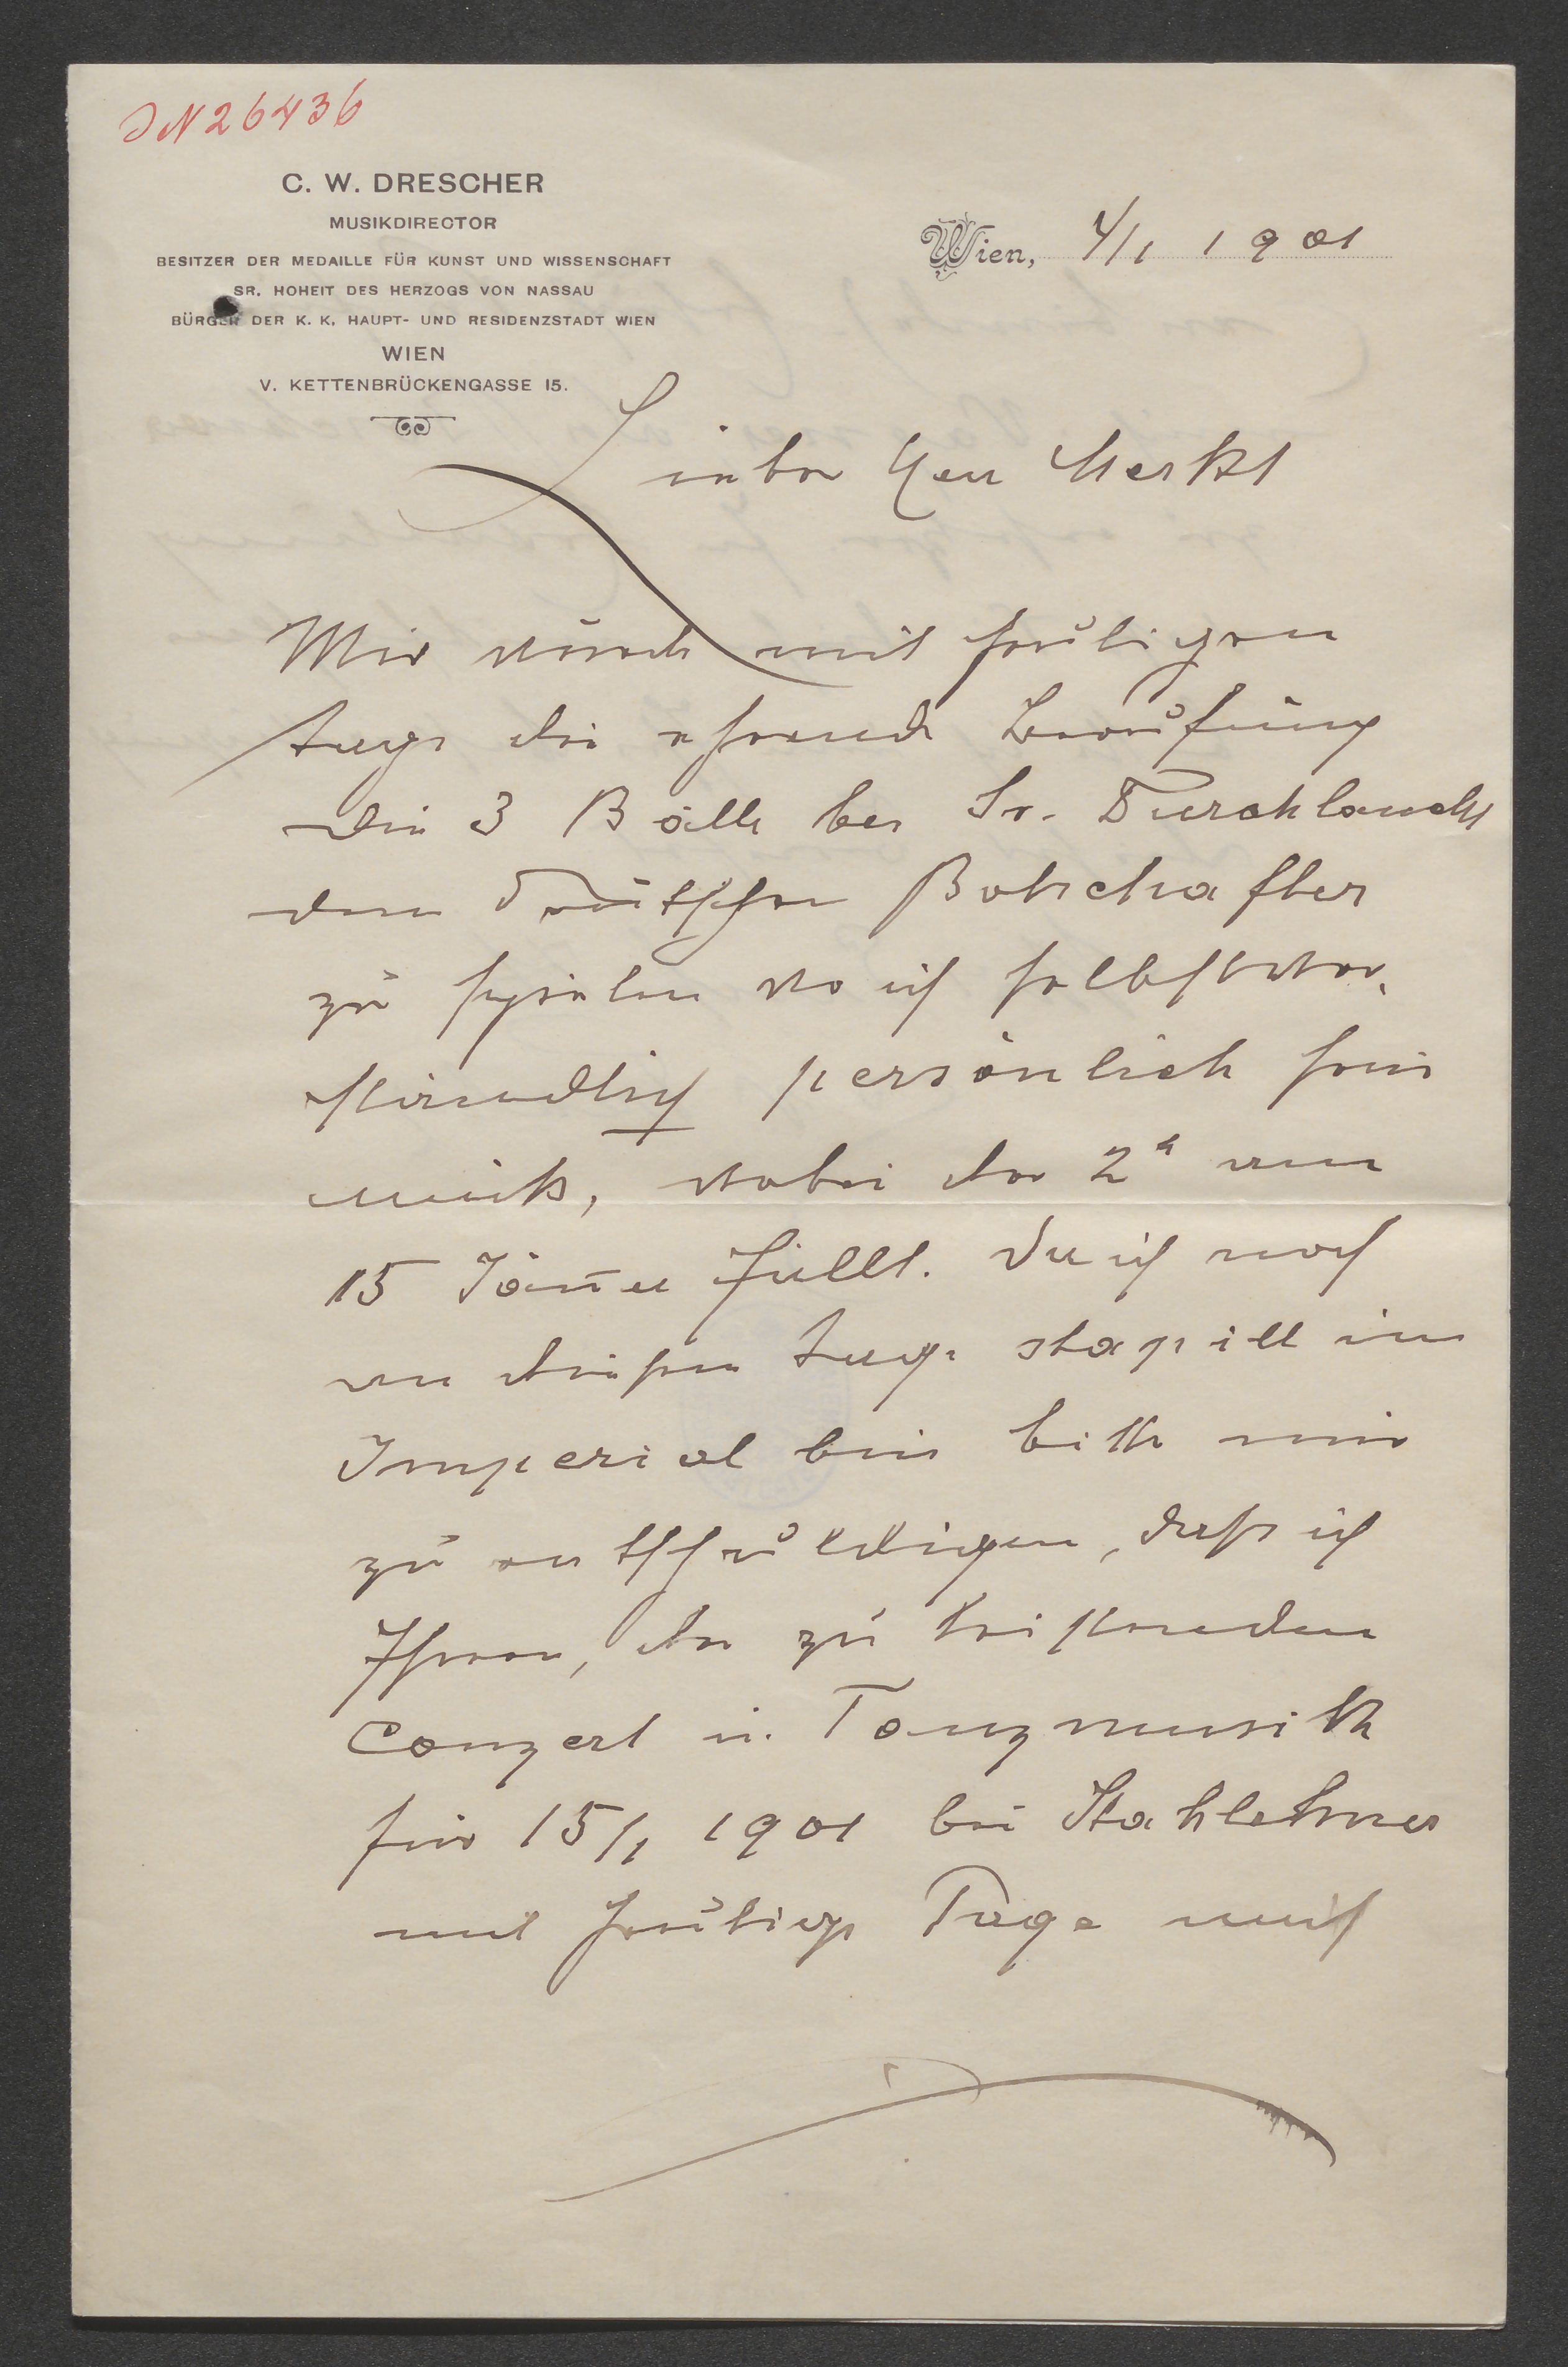 JN 26436
C. W. DRESCHER
MUSIKDIRECTOR
BESITZER DER MEDAILLE FÜR KUNST UND WISSENSCHAFT
SR. HOHEIT DES HERZOGS VON NASSAU
BÜRGER DER K. K. HAUPT- UND RESIDENZSTADT WIEN
WIEN
V. KETTENBRÜCKENGASSE 15.
Wien, 4/1 1901
Lieber Herr Merkt
Mir wurde mit heutigem
Tage die ehrende Berufung
die 3 Bälle bei Sr. Durchlaucht
dem Deutschen Botschafter
zu spielen wo ich selbstver-
ständlich persönlich sein
muß, wobei der 2te am
15 Jänner fällt. Da ich noch
an diesem Tage stapill im
Imperial bin bitte mir
zu entschuldigen, dass ich
Ihnen, der zu leistenden
Conzert u. Tanzmusik
für 15/1 1901 bei Stahlehner
mit heutige Tage mich